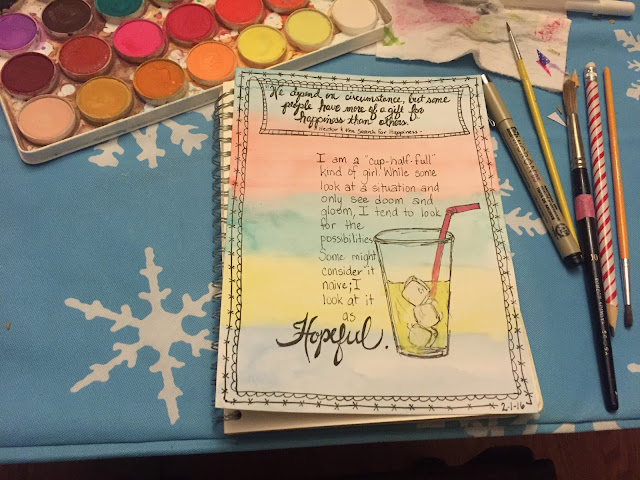 We depend on circumstance, but some
people have more of a gift for
happiness than others.
- Hector & the Search for Happiness -
I am a "cup-half-full"
kind of girl. While some
look at a situation and
only see doom and
gloom, I tend to look
for the
possibilities.
Some might
consider it
naive; I
look at it
as
Hopeful.
2-1-16